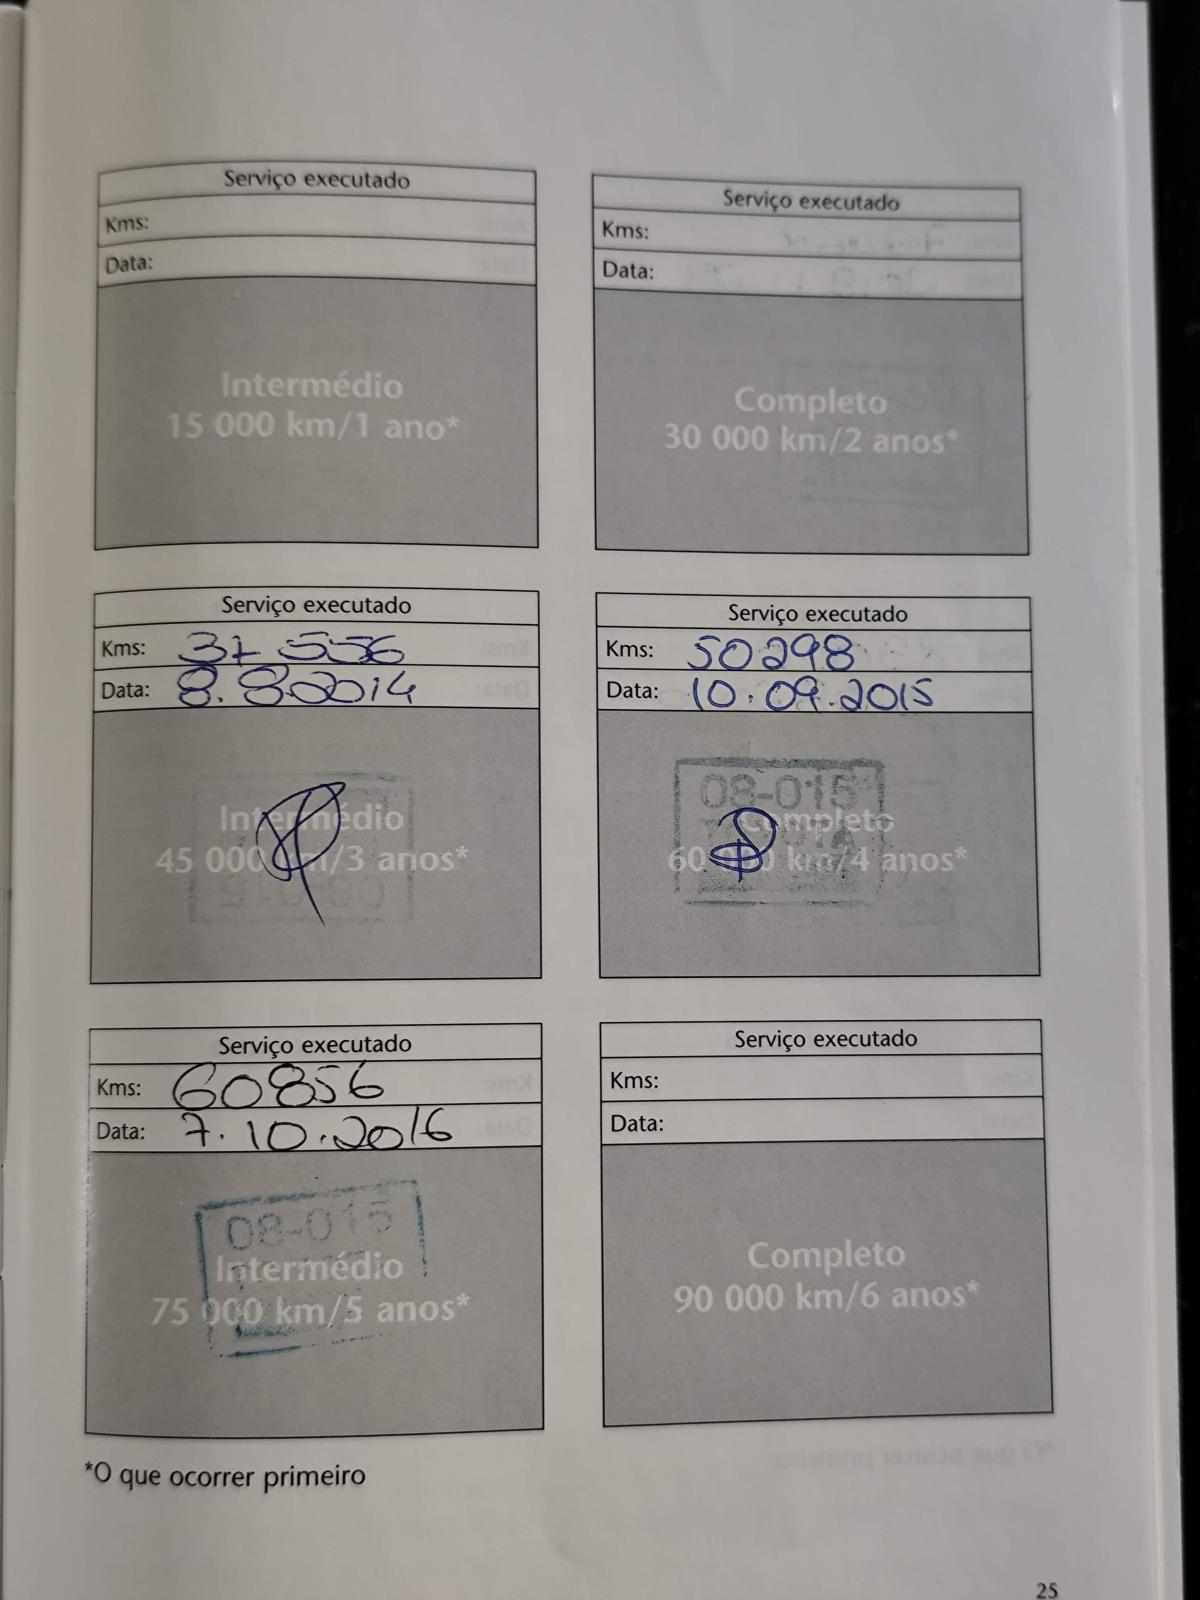 Serviço executado
Kms:
Data:
Intermédio
15 000 km/1 ano*
Serviço executado
Kms:
Data:
Completo
30 000 km/2 anos*
Serviço executado
Kms: 37 556
Data: 8.8.2014
Intermédio
45 000 km/3 anos*
Serviço executado
Kms: 50298
Data: 10.09.2015
08-015
Completo
60 000 km/4 anos*
Serviço executado
Kms: 60856
Data: 7.10.2016
08-015
Intermédio
75 000 km/5 anos*
Serviço executado
Kms:
Data:
Completo
90 000 km/6 anos*
*O que ocorrer primeiro
25